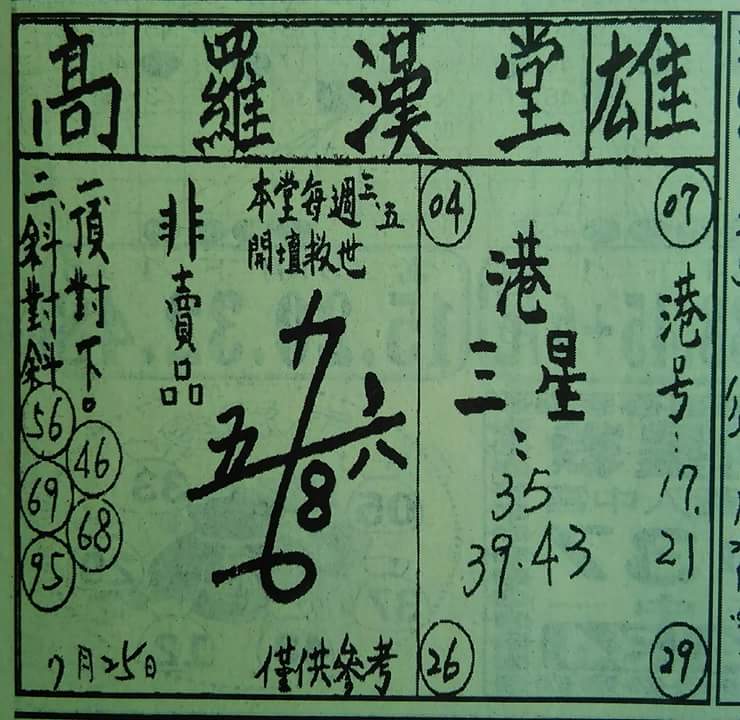 高 羅漢堂 雄
本堂每週三、五
開壇救世
非賣品
一頂對下。
二斜對斜
56
69
95
46
68
九
五 六
8
7月25日
僅供參考
04
07
港三星：
35
39.43
港号：
17.
21
26
29